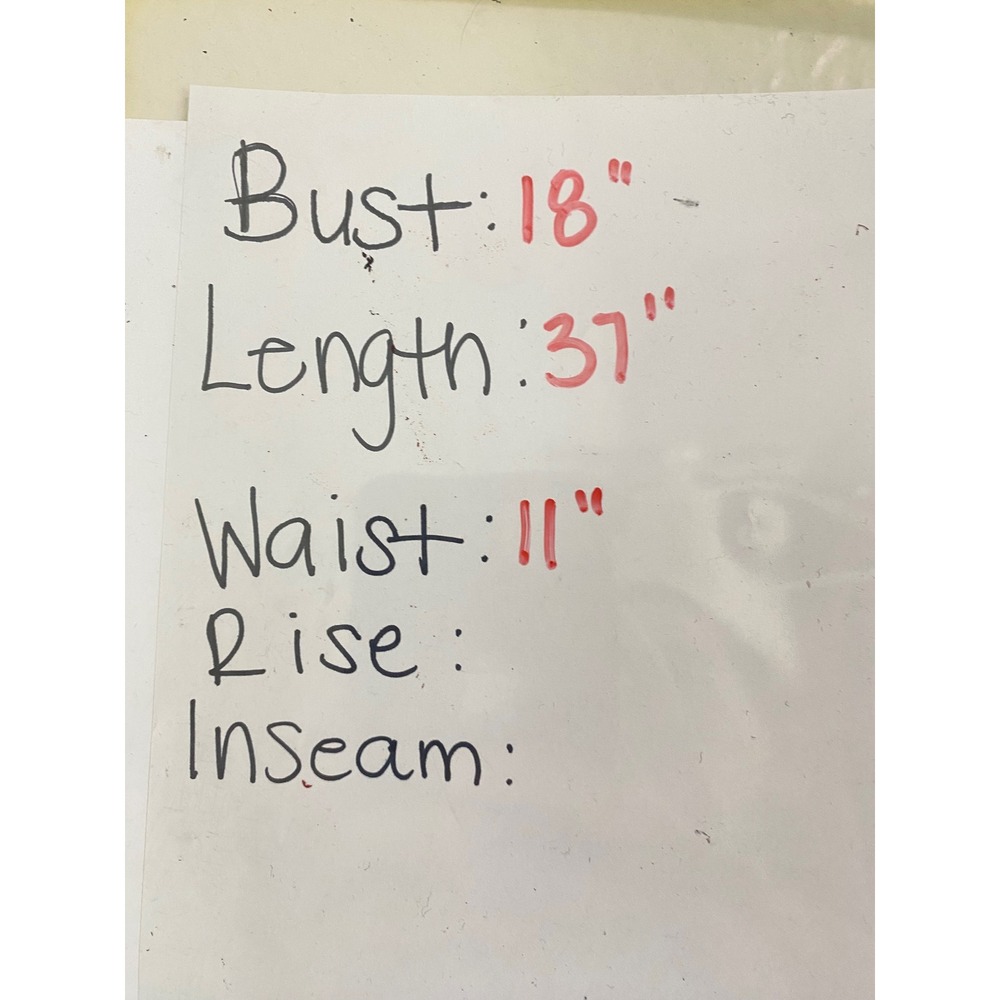 Bust: 18"
Length: 37"
Waist: 11"
Rise:
Inseam: